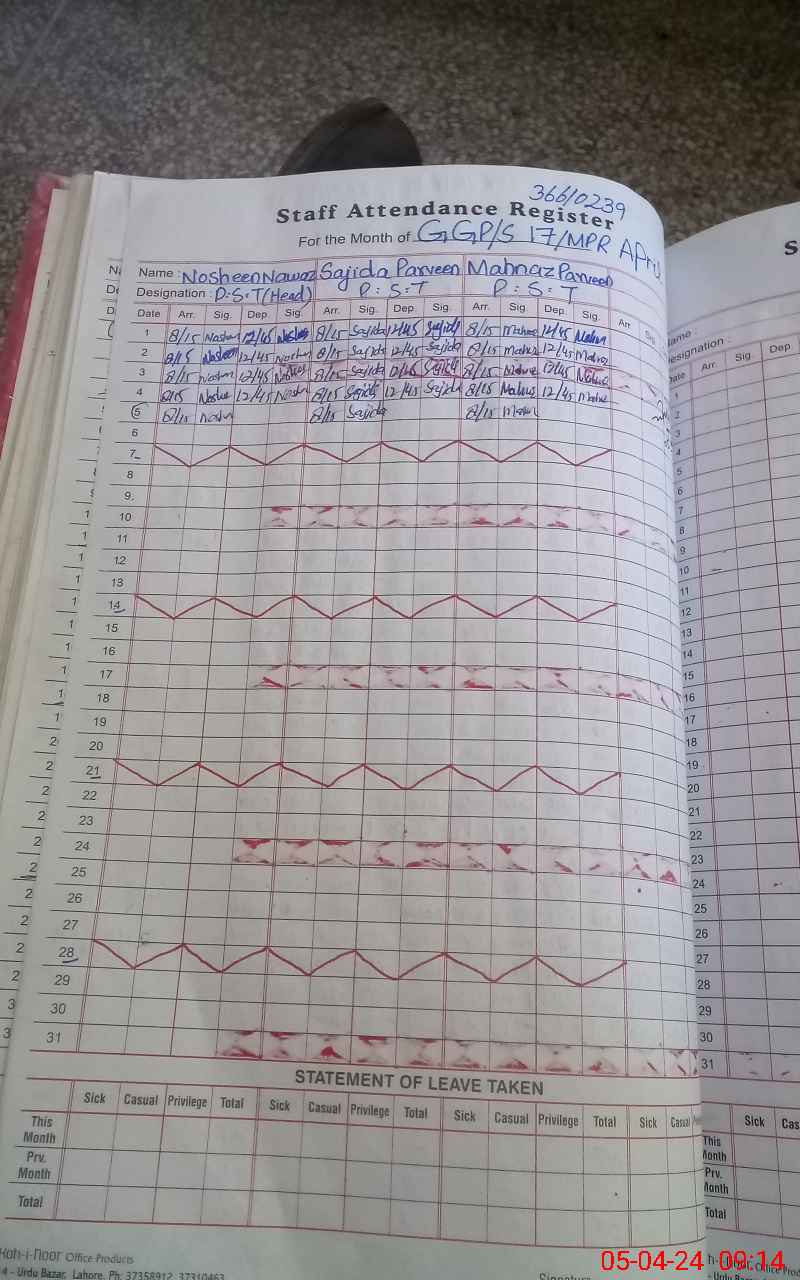 36610239
Staff Attendance Register
For the Month of GGP/S 17/MPR April
Name : Nosheen Nawaz Sajida Parveen Mahnaz Parveen
Designation : P.S.T (Head) P : S : T P : S : T
Date Arr. Sig. Dep. Sig. Arr. Sig. Dep. Sig. Arr. Sig. Dep. Sig. Arr
1 8/15 Noshn 12/45 8/15 Sajida 12/45 Sajida 8/15 12/45
2 8/15 12/45 8/15 Sajida 12/45 Sajida 8/15 12/45
3 8/15 12/45 8/15 Sajida 12/45 8/15 12/45
4 8/15 12/45 8/15 Sajida 12/45 Sajida 8/15 12/45
5 8/15 8/15 Sajida 8/15
6
7
8
9
10
11
12
13
14
15
16
17
18
19
20
21
22
23
24
25
26
27
28
29
30
31
STATEMENT OF LEAVE TAKEN
Sick Casual Privilege Total Sick Casual Privilege Total Sick Casual Privilege Total Sick Casual
This Month
Prv. Month
Total
Koh-i-Noor Office Products
4 - Urdu Bazar, Lahore. Ph: 37358912, 37310463
S
Arr. Sig. Dep.
1
2
3
4
5
6
7
8
9
10
11
12
13
14
15
16
17
18
19
20
21
22
23
24
25
26
27
28
29
30
31
Sick
This
Month
Prv.
Month
Total
05-04-24 09:14